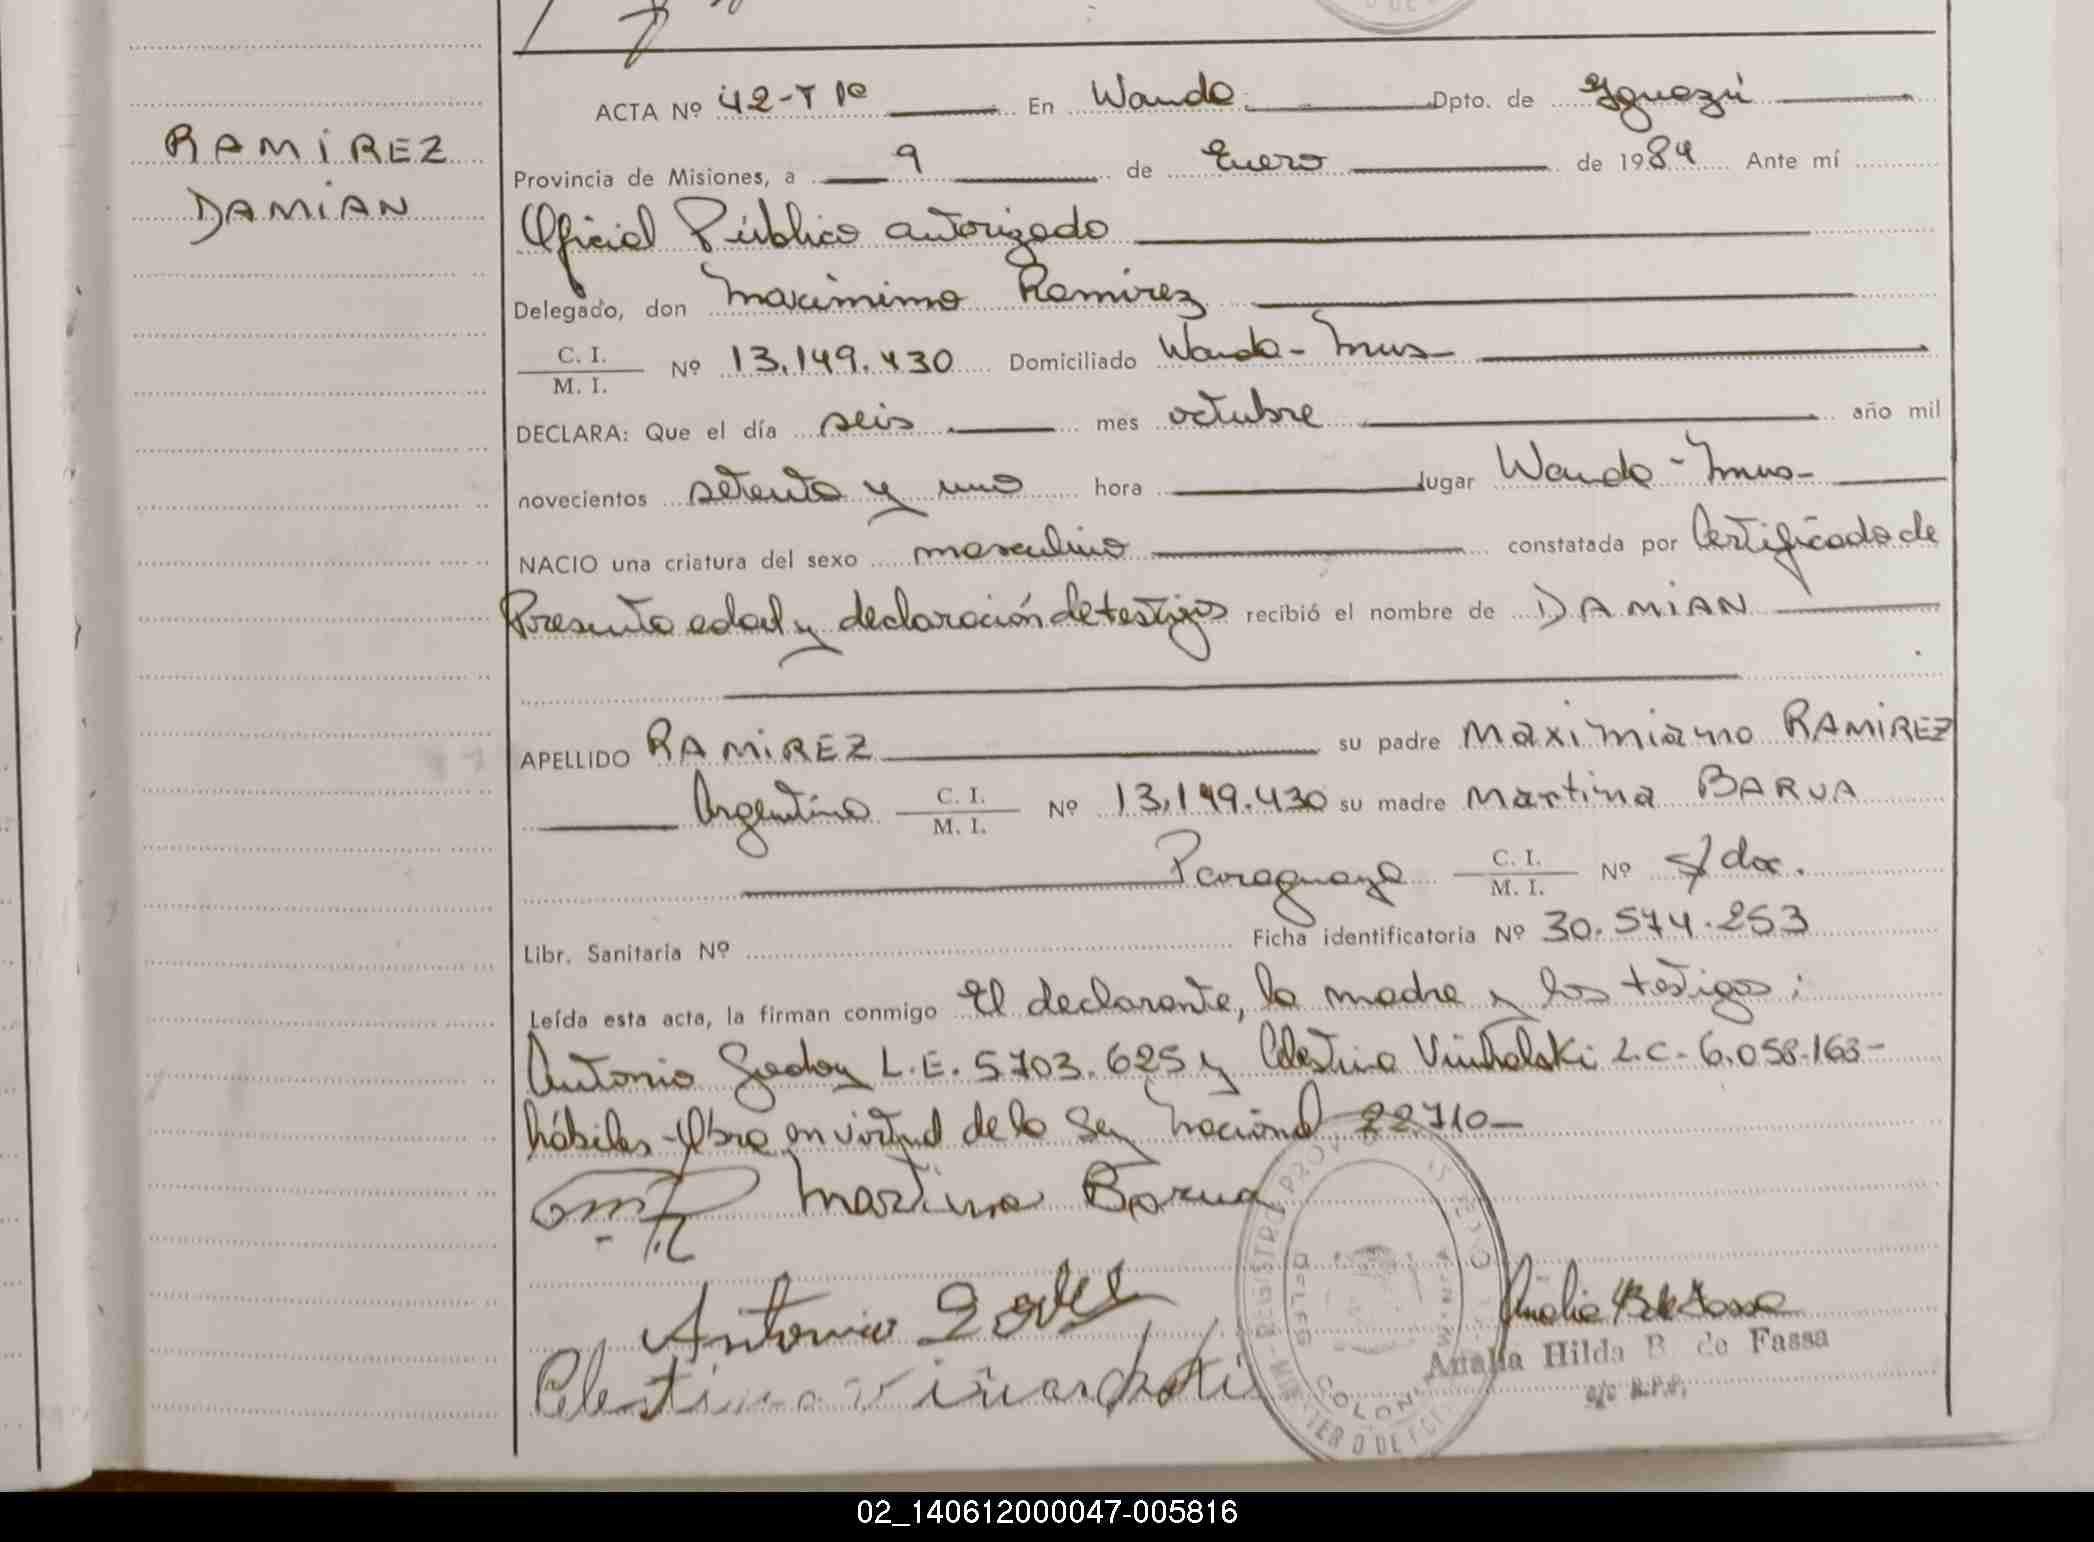 RAMIREZ
DAMIAN
ACTA Nº 42-T Iº En Wanda Dpto. de Iguazú
Provincia de Misiones, a 9 de Enero de 1984 Ante mí
Oficial Público autorizado
Delegado, don Maximino Ramirez
C. I.
M. I. Nº 13.149.430 Domiciliado Wanda - Mnes-
DECLARA: Que el día seis mes octubre año mil
novecientos setenta y uno hora lugar Wanda - Mnes-
NACIO una criatura del sexo masculino constatada por Certificado de
Presunta edad y declaración de testigos recibió el nombre de DAMIAN
APELLIDO RAMIREZ su padre Maximiano RAMIREZ
Argentino C. I.
M. I. Nº 13.149.430 su madre Martina BARUA
Paraguaya C. I.
M. I. Nº s/doc.
Libr. Sanitaria Nº Ficha identificatoria Nº 30.574.253
Leída esta acta, la firman conmigo El declarante, la madre y los testigos:
Antonio Godoy L.E. 5703.625 y Celestina L.C. 6.058.163-
hábiles - Obra en virtud de la Ley Nacional 22710-
Martina Barua
Antonio
Celestina
Analia B de Fassa
Analia Hilda B. de Fassa
02_140612000047-005816